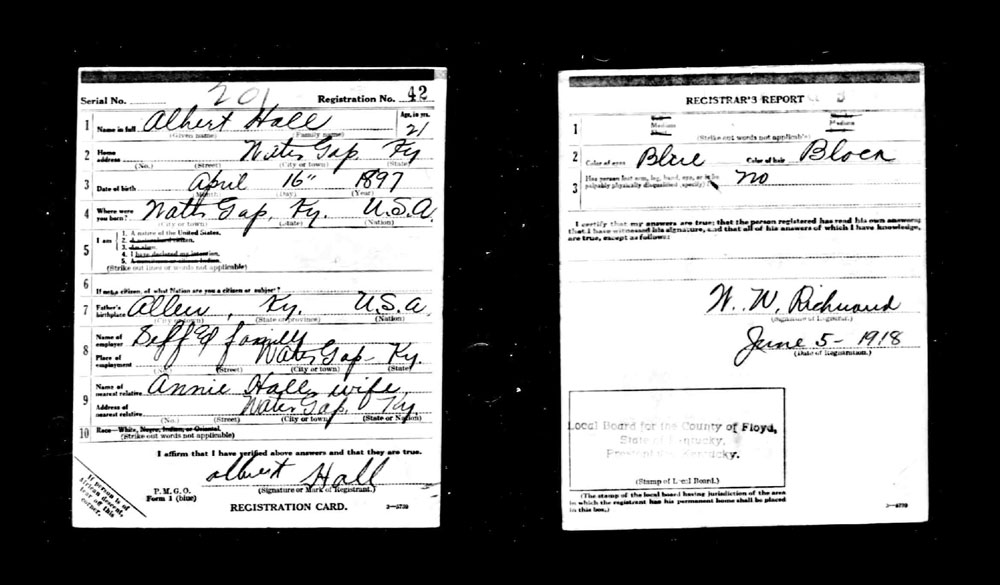 Serial No. 201 Registration No. 42
1 Name in full Albert Hall Age, in yrs. 21
(Given name) (Family name)
2 Home address Water Gap Ky
(No.) (Street) (City or town) (State)
3 Date of birth April 16" 1897
(Month) (Day) (Year)
4 Where were you born? Water Gap, Ky. U.S.A.
(City or town) (State) (Nation)
5 I am
1. A native of the United States.
2. A naturalized citizen.
3. An alien.
4. I have declared my intention.
5. A citizen Indian.
(Strike out lines or words not applicable)
6 If not a citizen, of what Nation are you a citizen or subject?
7 Father's birthplace Allen, Ky. U.S.A
(City or town) (State or province) (Nation)
8 Name of employer Self & family
Place of employment Water Gap - Ky.
(Street) (City or town) (State)
9 Name of nearest relative Annie Hall, wife,
Address of nearest relative Water Gap, Ky.
(No.) (Street) (City or town) (State or Nation)
10 Race—White, Negro, Indian, or Oriental.
(Strike out words not applicable)
I affirm that I have verified above answers and that they are true.
Albert Hall
P. M. G. O.
Form 1 (blue)
(Signature or Mark of Registrant.)
REGISTRATION CARD.
3—5739
If person is of
African descent,
tear off this
corner.
REGISTRAR'S REPORT
1 Medium Medium
Short
(Strike out words not applicable)
2 Color of eyes Blue Color of hair
3 Has person lost arm, leg, hand, eye, or is he palpably physically disqualified (specify)? No
I certify that my answers are true; that the person registered has read his own answers;
that I have witnessed his signature, and that all of his answers of which I have knowledge,
are true, except as follows:
W. W.
(Signature of Registrar.)
June 5 - 1918
(Date of Registration.)
Local Board for the County of Floyd,
State of Kentucky,
Kentucky.
(Stamp of Local Board.)
(The stamp of the local board having jurisdiction of the area
in which the registrant has his permanent home shall be placed
in this box.)
3—5739